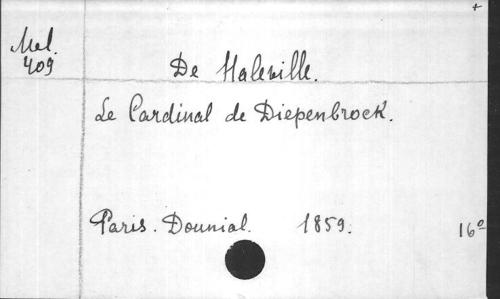 Mel.
409
De Haleville.
Le Cardinal de Diepenbrock.
Paris. Douniol. 1859. 16°